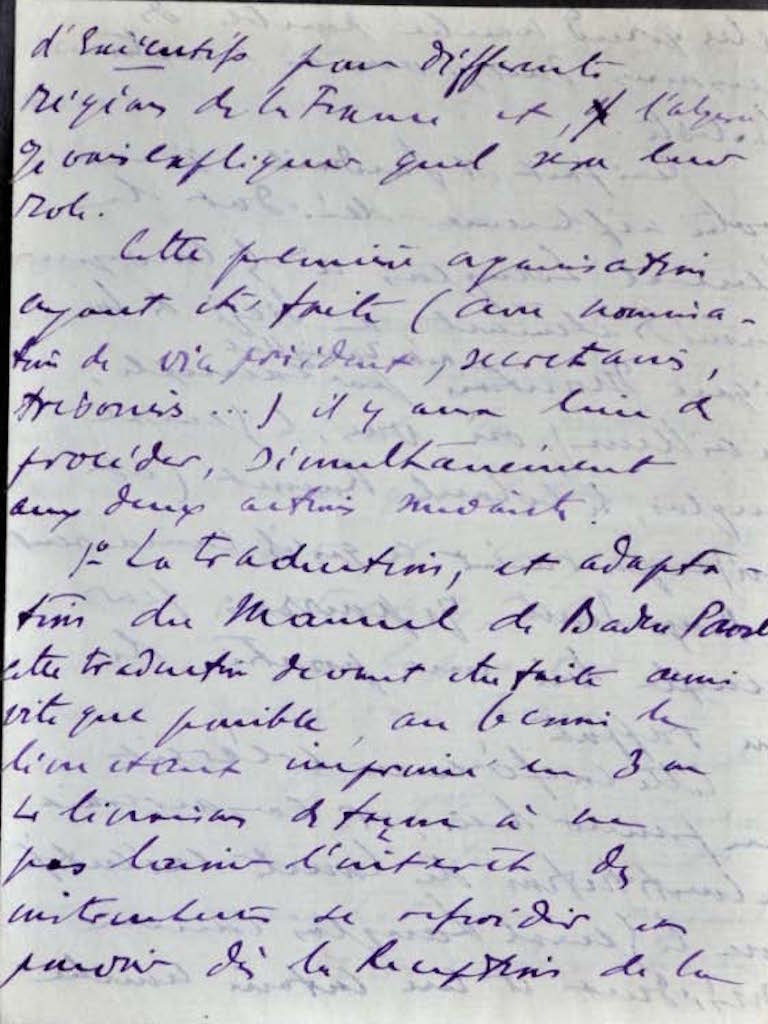 d'Exécutifs pour différents
régions de la France et, de l'algérie
Je vais expliquer quel sera leur
role.
Cette première organisation
ayant été faite (avec nomina-
tion de vice président, secretaire,
trésoriers ...) il y aura lieu de
procéder, simultanément
aux deux actions suivantes.
1º La traduction, et adapta-
tion du Manuel de Baden Powel
cette traduction devant etre faite aussi
vite que possible, au besoin le
livre étant imprimé en 3 ou
4 livraisons de façon à ne
pas laisser l'intérêt des
se refroidir et
pouvoir dès la Reception de la